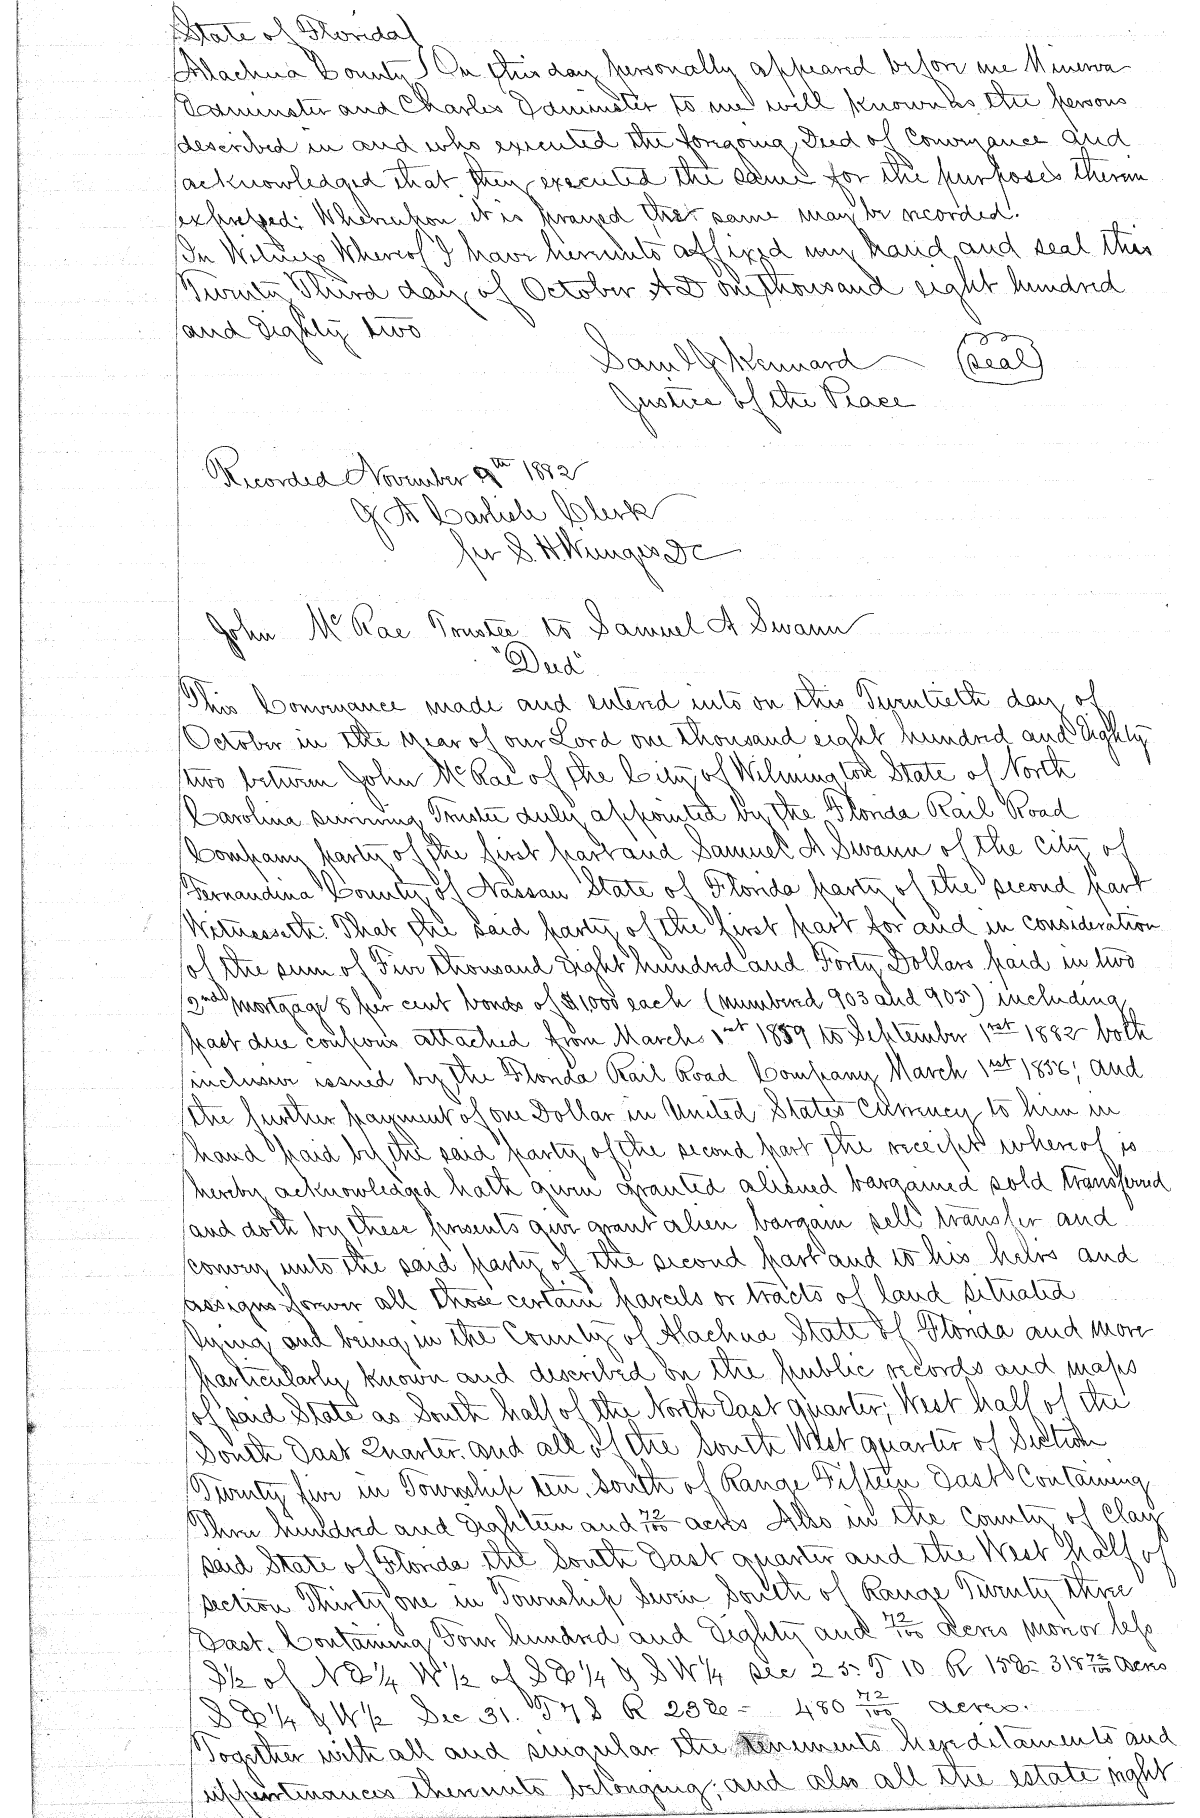 State of Florida)
Alachua County) On this day personally appeared before me Minerva
Edminster and Charles Edminster to me well known as the persons
described in and who executed the foregoing Deed of Conveyance and
acknowledged that they executed the same for the purposes therein
expressed: Whereupon it is prayed that same may be recorded.
In Witness Whereof I have hereunto affixed my hand and seal this
Twenty Third day of October A D one thousand eight hundred
and Eighty two
Saml J Kennard (seal)
Justice of the Peace
Recorded November 9th 1882
J A Carlisle Clerk
per S. H. Wienges DC
John McRae Trustee to Samuel A Swann
"Deed"
This Conveyance made and entered into on this Twentieth day of
October in the year of our Lord one thousand eight hundred and Eighty
two between John McRae of the City of Wilmington State of North
Carolina surviving Trustee duly appointed by the Florida Rail Road
Company party of the first part and Samuel A Swann of the city of
Fernandina County of Nassau State of Florida party of the second part
Witnesseth: That the said party of the first part for and in consideration
of the sum of Five thousand Eight hundred and Forty Dollars paid in two
2nd mortgage 8 per cent bonds of $1,000 each (numbered 903 and 905) including
past due coupons attached from March 1st 1859 to September 1st 1882 both
inclusive issued by the Florida Rail Road Company March 1st 1856; and
the further payment of one Dollar in United States Currency to him in
hand paid by the said party of the second part the receipt whereof is
hereby acknowledged hath given granted aliened bargained sold transferred
and doth by these presents give grant alien bargain sell transfer and
convey unto the said party of the second part and to his heirs and
assigns forever all those certain parcels or tracts of land situated
lying and being in the County of Alachua State of Florida and more
particularly known and described on the public records and maps
of said State as South half of the North East quarter; West half of the
South East Quarter and all of the South West quarter of Section
Twenty five in Township ten South of Range Fifteen East Containing
Three hundred and Eighteen and 72/100 acres Also in the County of Clay
said State of Florida the South East quarter and the West half of
section Thirty one in Township Seven South of Range Twenty three
East. Containing Four hundred and Eighty and 72/100 Acres more or less
S½ of NE¼ W½ of SE¼ & SW¼ Sec 25. T 10 R 15E= 318 72/100 Acres
SE¼ & W½ Sec 31. T7S R 23E= 480 72/100 acres.
Together with all and singular the tenements hereditaments and
appurtenances thereunto belonging; and also all the estate right